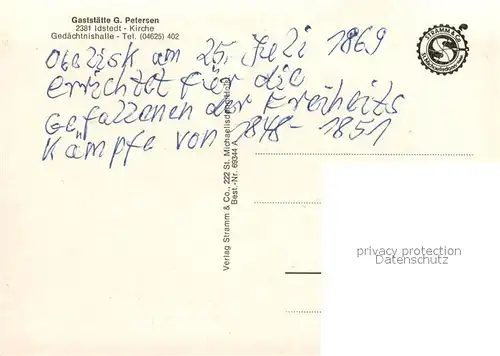 Gaststätte G. Petersen
2381 Idstedt - Kirche
Gedächtnishalle - Tel. (04625) 402
Obelisk am 25. Juli 1869
errichtet für die
Gefallenen der Freiheits
Kämpfe von 1848 - 1851
Verlag Stramm & Co., 222 St. Michaelisdonn/Holst.
Best.-Nr. 69344 A
STRAMM & CO
privacy protection
Datenschutz